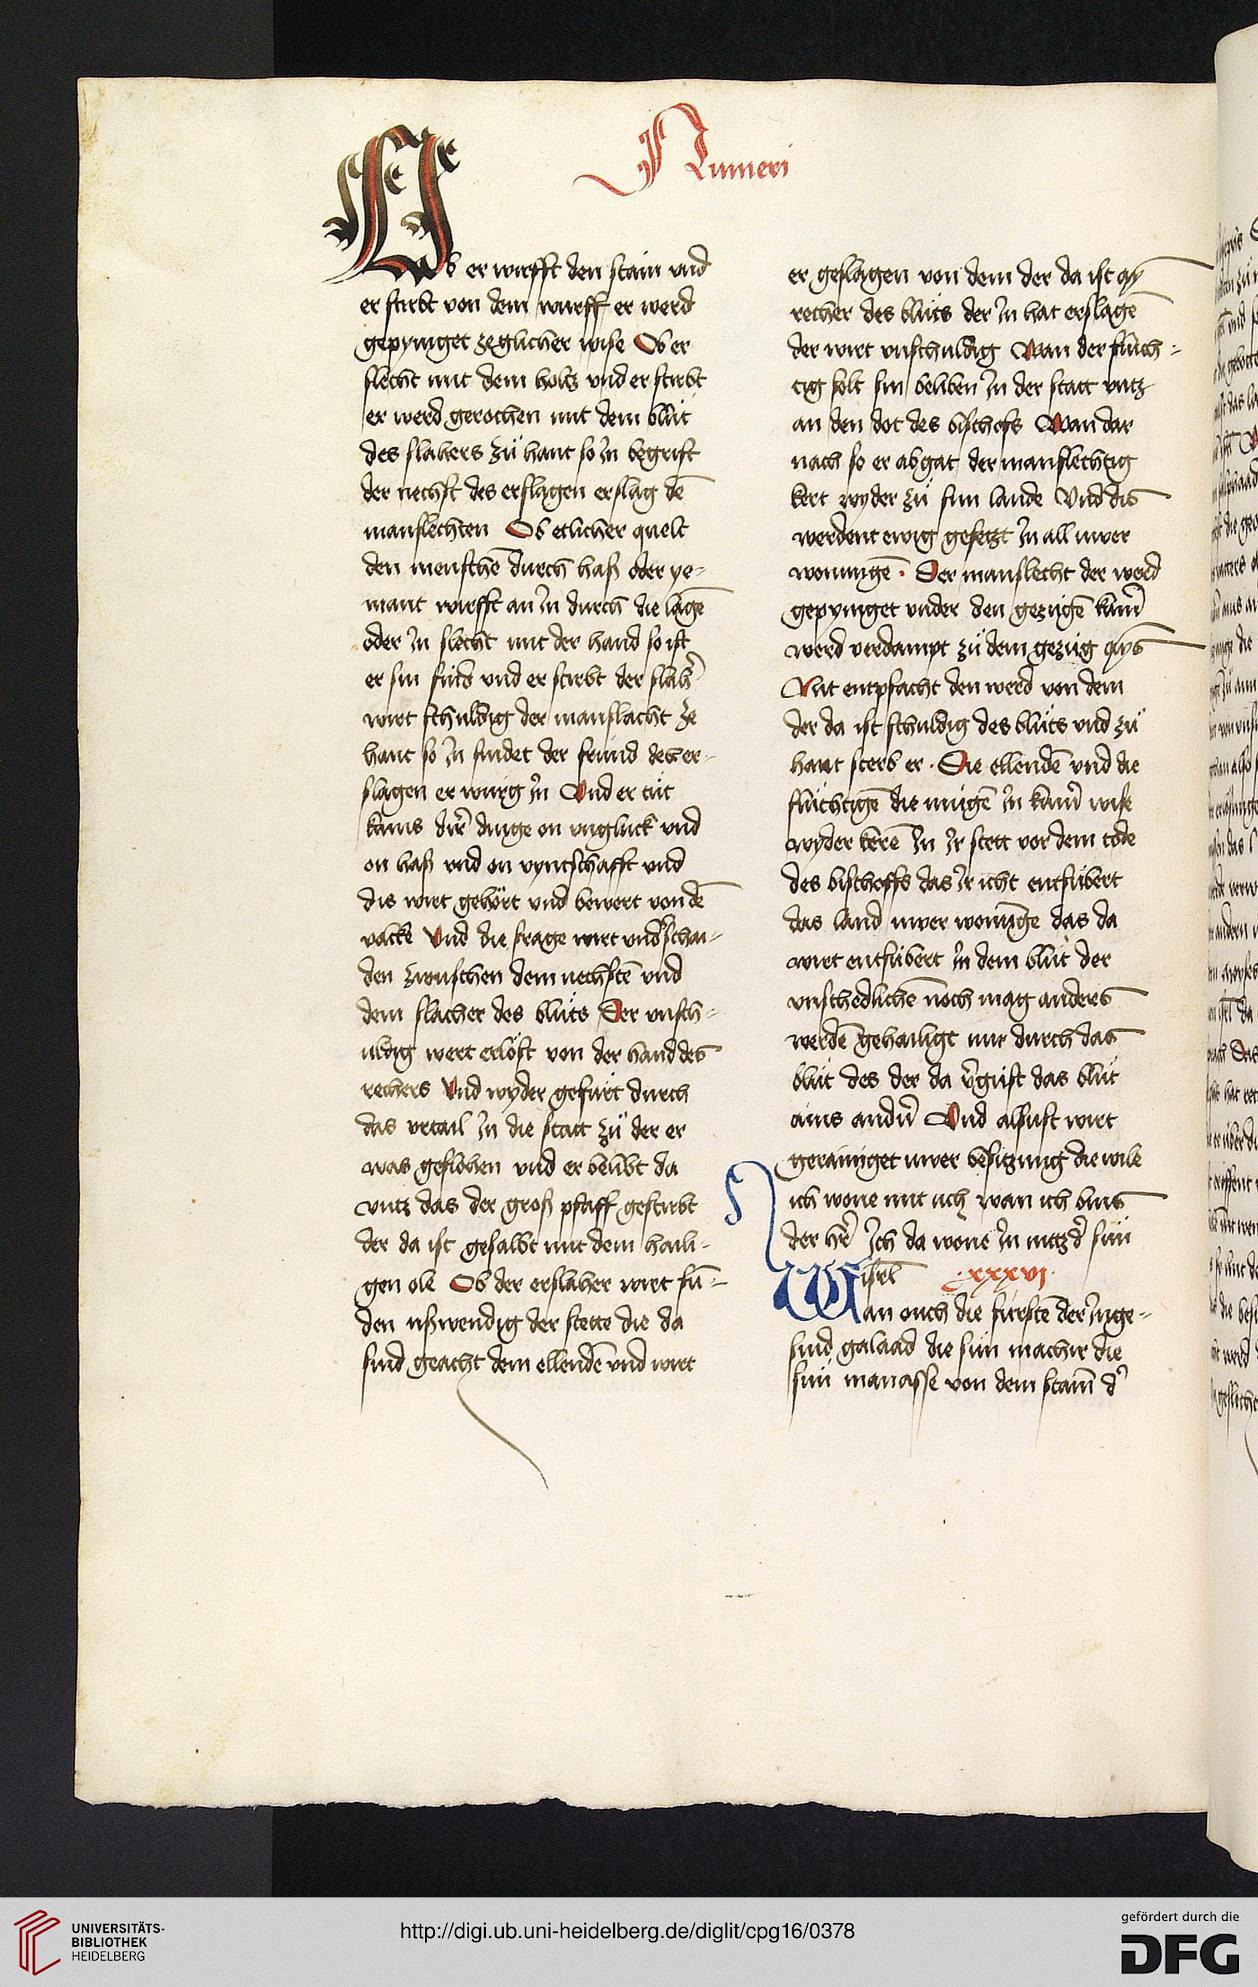 Numeri
Ob er wurfft den stain vnd
er stirbt von dem wurff er werd
gepyniget zeglicher wise Ob er
slecht mit dem holtz vnd er stirbt
er werd gerochen mit dem blüt
des slahers zü hant so In begrift
der nechst des erslagen erslag dē
manslechten Ob etlicher quelt
den menschē durch haß oder ye-
mant wurfft an In durch die lagē
oder In slecht mit der hand so ist
er sin find vnd er stirbt der slah
wirt schuldig der manslacht ze
hant so In findet der frund der er-
slagen er würg In Vnd er tüt
kains dirr dinge on vngluck vnd
on haß vnd on vyntschafft vnd
dis wirt gehört vnd bewert von dē
volck Vnd die frage wirt vndschai-
den zwuschen dem nechstē vnd
dem slacher des blüts Der vnsch-
uldig wert erlöst von der hand des
rechers Vnd wyder gefürt durch
das vrtail In die statt zü der er
was geflohen vnd er belibt da
vntz das der groß pfaff gestirbt
der da ist gesalbt mit dem haili-
gen ole Ob der erslaher wirt fun-
den ußwendig der stette die da
sind geacht dem ellendē vnd wirt
er geslagen von dem der da ist ay
recher des blüts der In hat erslagē
der wirt vnschuldig Wan der flüch-
tig solt sin beliben In der statt vntz
an den dot des bischofs Wan dar
nach so er abgat der manslechtig
kert wyder zü sim lande Vnd dis
werdent ewig gesetzt In all uwer
wonungē . Der manslecht der werd
gepyniget vnder den gezügē kain
werd verdampt zü dem gezüg ayns
Nit entpfacht den werd von dem
der da ist schuldig des blüts vnd zü
hant sterb er . Die ellendē vnd die
flüchtigē die mügē In kain wise
wyder kerē In Ir stett vor dem tode
des bischoffs das Ir icht entsübert
das land uwer wonūge das da
wirt entsübert In dem blüt der
vnschedlichē noch mag anders
werdē gehailigt nur durch das
blüt des der da vgüst das blüt
ains andn Vnd alsust wirt
gerainiget uwer besitzung die wile
ich wone mit uch wan ich bins
der her Ich da wone In mitz d sün
isrl .xxxvi.
Wan ouch die fürstē der Inge-
sind galaad die sün machir die
sün manasse von dem stam d
UNIVERSITÄTS-
BIBLIOTHEK
HEIDELBERG
http://digi.ub.uni-heidelberg.de/diglit/cpg16/0378
gefördert durch die
DFG